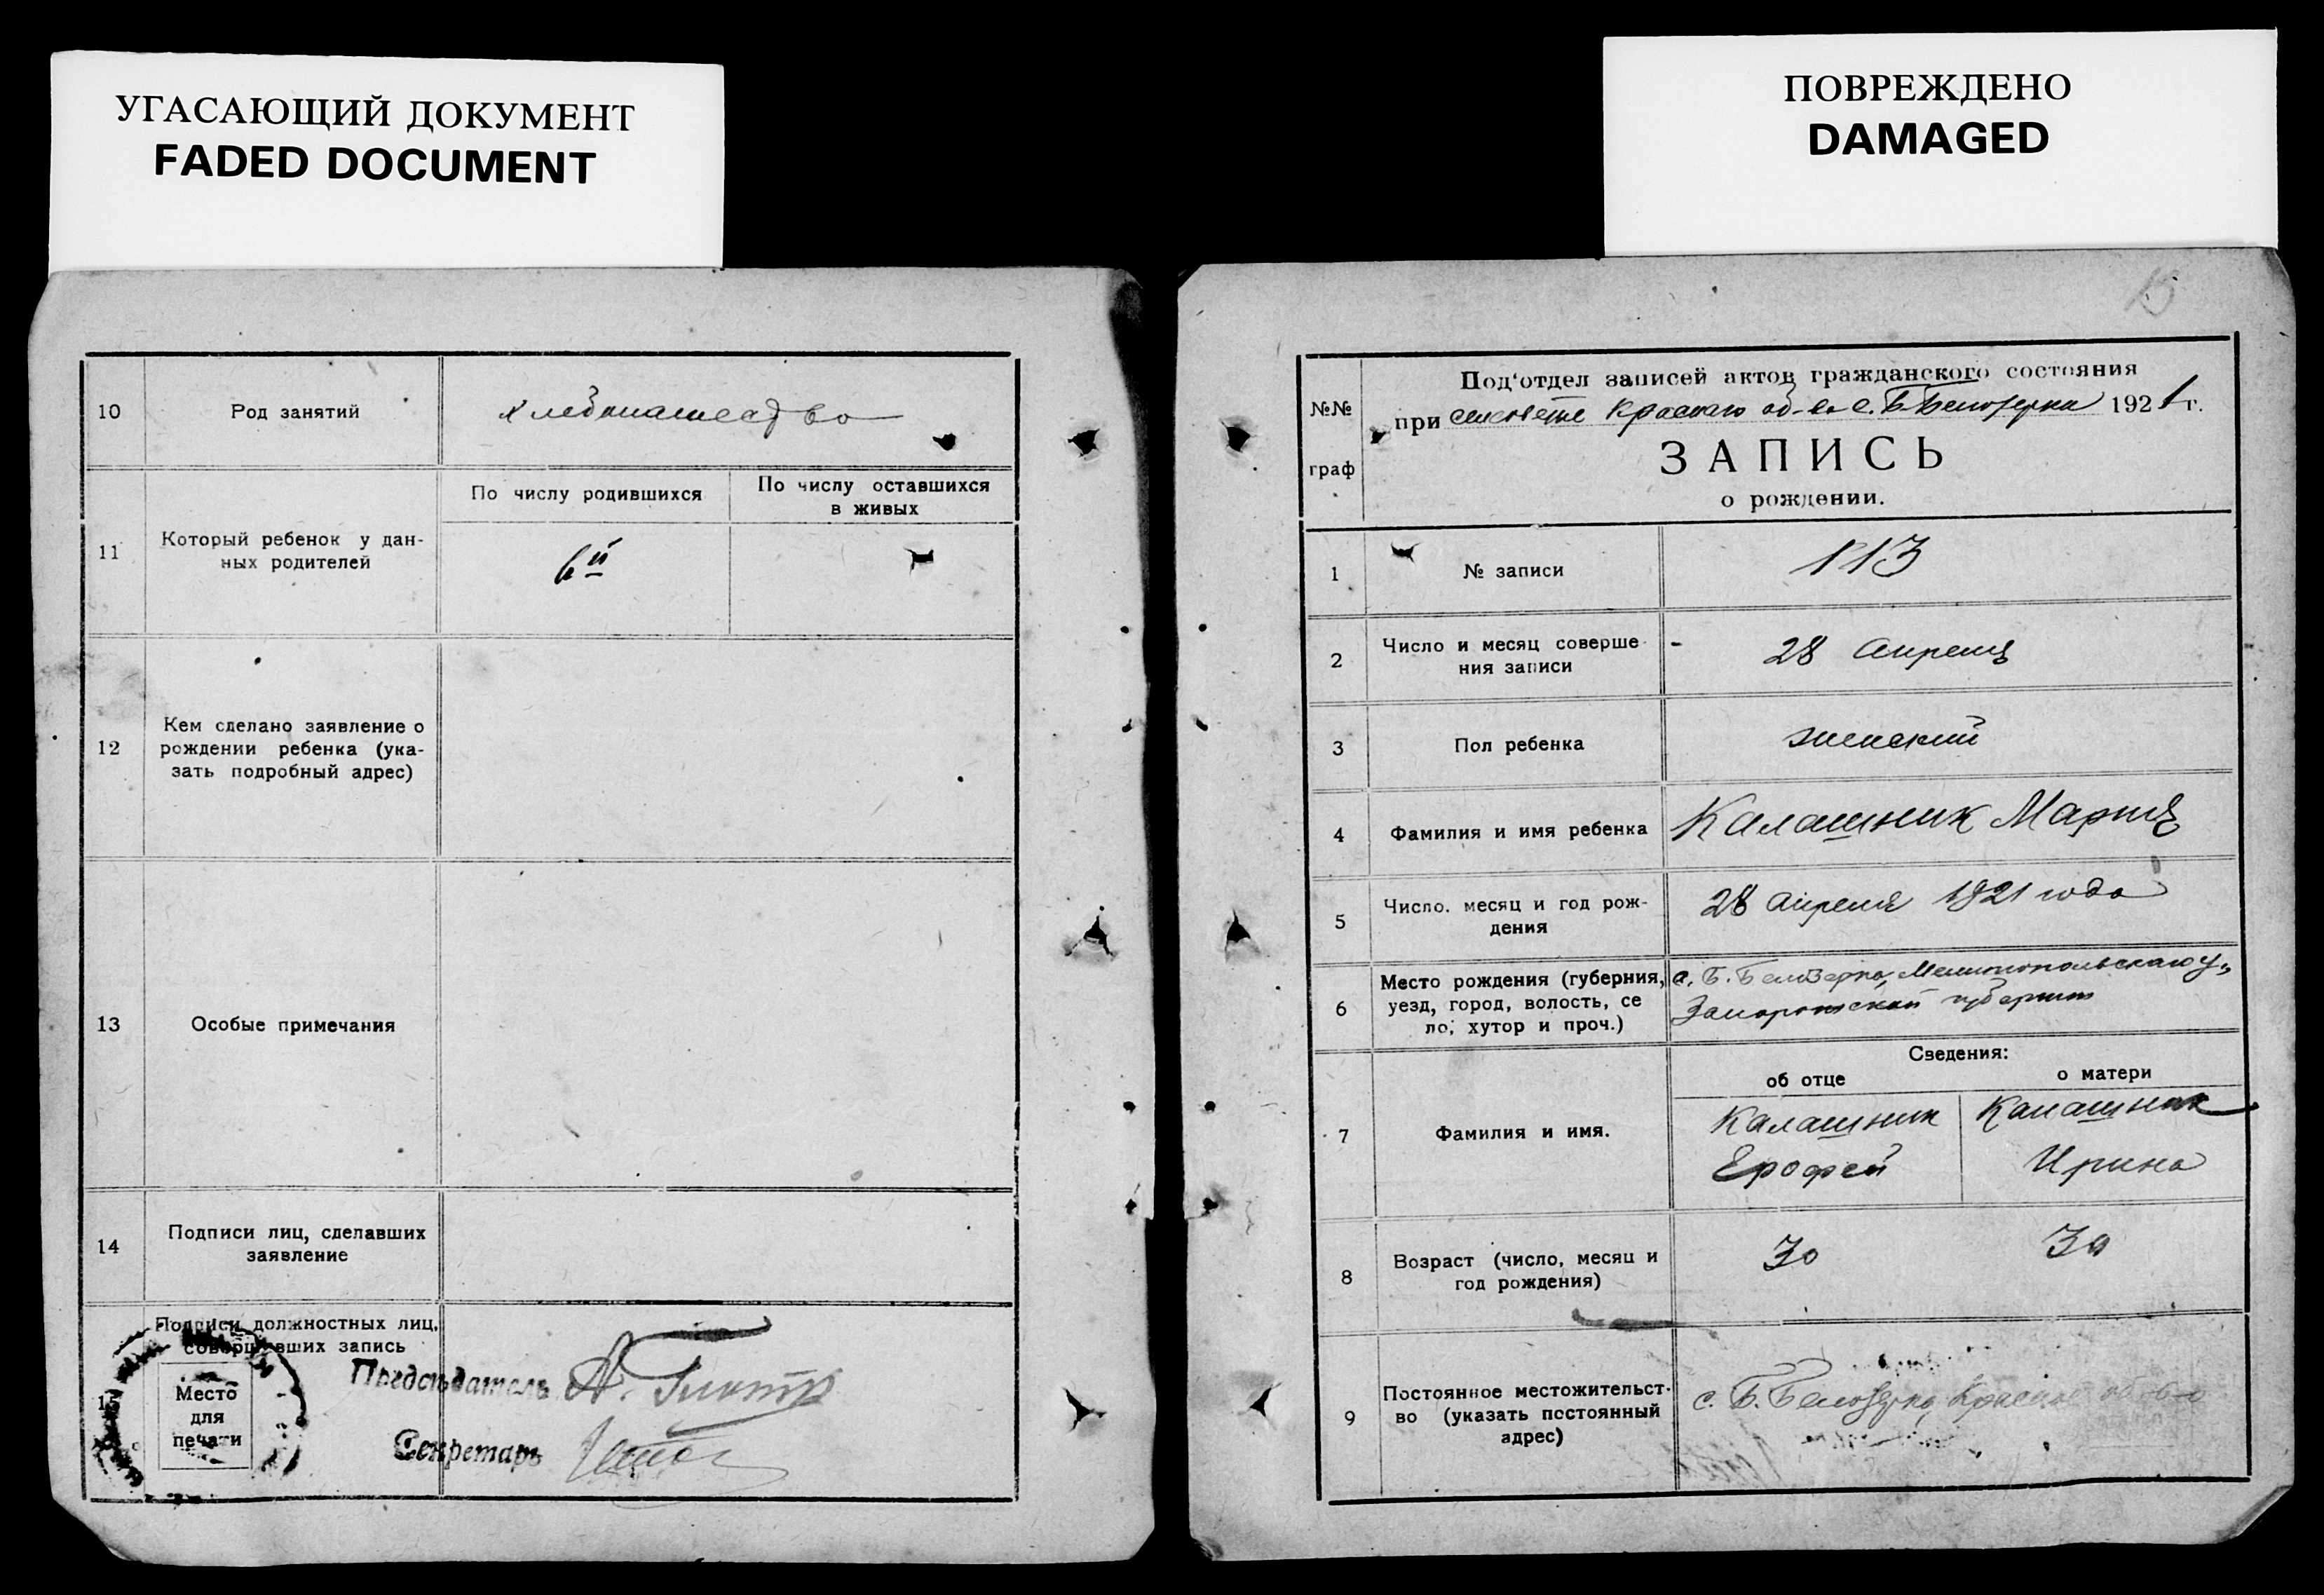 УГАСАЮЩИЙ ДОКУМЕНТ
FADED DOCUMENT
ПОВРЕЖДЕНО
DAMAGED
10
Род занятий
хлебопашество
11
Который ребенок у дан-
ных родителей
По числу родившихся
По числу оставшихся
в живых
6й
12
Кем сделано заявление о
рождении ребенка (ука-
зать подробный адрес)
13
Особые примечания
14
Подписи лиц, сделавших
заявление
15
Подписи должностных лиц,
совершивших запись
Место
для
печати
Председатель А.
Секретарь
15
№№
граф
Под'отдел записей актов гражданского состояния
при об-ва с. Б-Белозерки 1921 г.
ЗАПИСЬ
о рождении.
1
№ записи
113
2
Число и месяц соверше-
ния записи
28 Апреля
3
Пол ребенка
женский
4
Фамилия и имя ребенка
Калашник Мария
5
Число, месяц и год рож-
дения
28 апреля 1921 года
6
Место рождения (губерния,
уезд, город, волость, се
ло, хутор и проч.)
с. Б. Белозерка, Мелитопольскаго у.,
Запорожской губернии
Сведения:
об отце
о матери
7
Фамилия и имя.
Калашник
Ерофей
Калашник
Ирина
8
Возраст (число, месяц и
год рождения)
30
30
9
Постоянное местожительст-
во (указать постоянный
адрес)
с. Б. Белозерка,